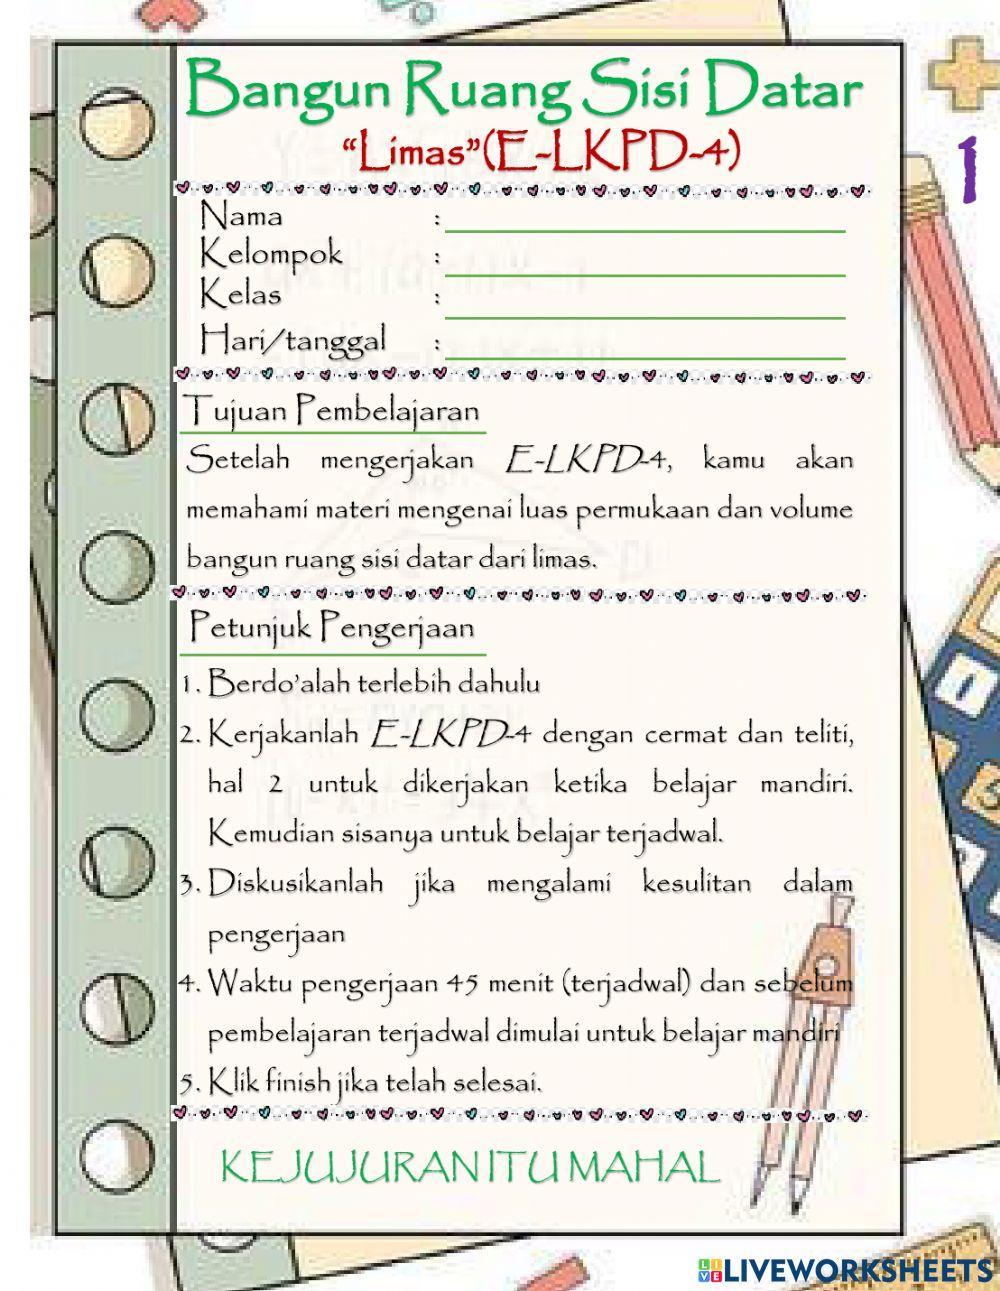 Bangun Ruang Sisi Datar
“Limas”(E-LKPD-4)
1
Nama :
Kelompok :
Kelas :
Hari/tanggal :
Tujuan Pembelajaran
Setelah mengerjakan E-LKPD-4, kamu akan
memahami materi mengenai luas permukaan dan volume
bangun ruang sisi datar dari limas.
Petunjuk Pengerjaan
1. Berdo’alah terlebih dahulu
2. Kerjakanlah E-LKPD-4 dengan cermat dan teliti,
hal 2 untuk dikerjakan ketika belajar mandiri.
Kemudian sisanya untuk belajar terjadwal.
3. Diskusikanlah jika mengalami kesulitan dalam
pengerjaan
4. Waktu pengerjaan 45 menit (terjadwal) dan sebelum
pembelajaran terjadwal dimulai untuk belajar mandiri
5. Klik finish jika telah selesai.
KEJUJURAN ITU MAHAL
LIVEWORKSHEETS